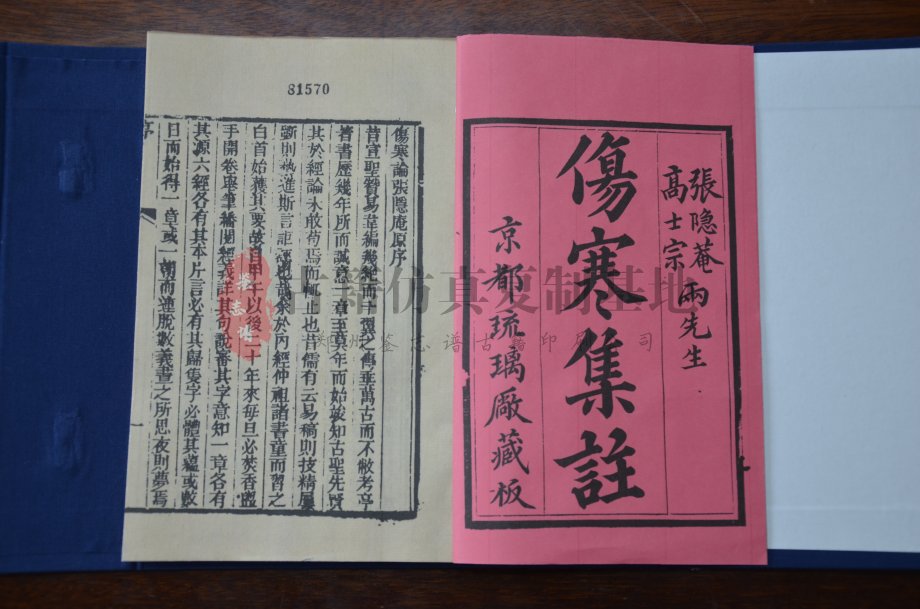 張隐菴
高士宗
兩先生
傷寒集註
京都琉璃厰藏板
81570
傷寒論張隱庵原序
昔宣聖贊易韋編幾絕而十翼之傳垂萬古而不敝考亭
著書歷幾年所而誠意一章至莫年而始竣知古聖先賢
其於經論未敢苟焉而輒止也昔儒有云易稿則技精屢
斵則藝進斯言誰謂也哉余於內經仲祖諸書童而習之
白首始獲其要故自甲午以後二十年來每旦必焚香盥
手開卷舉筆繙閱經義詳其句說審其字意知一章各有
其源六經各有其本片言必有其歸隻字必體其蘊或數
日而始得一章或一朝而連脫數義晝之所思夜則夢焉
古籍仿真复制基地